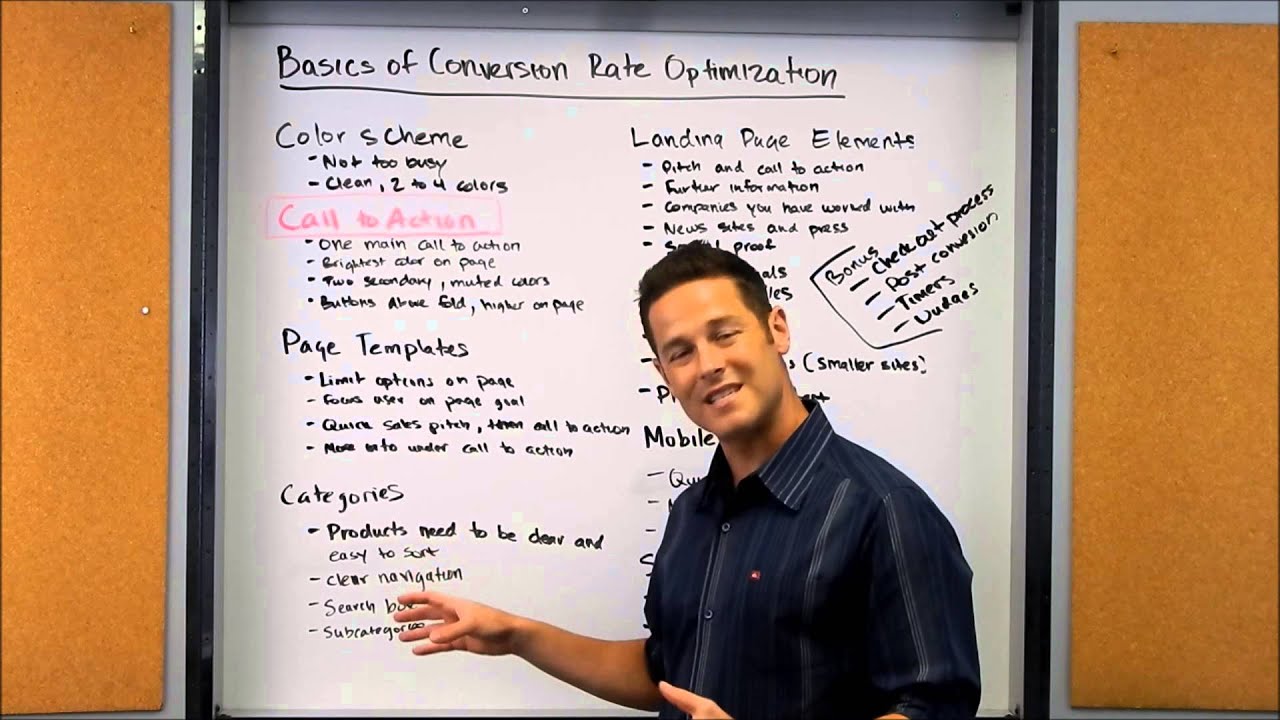 Basics of Conversion Rate Optimization
Color scheme
- Not too busy
- Clean, 2 to 4 colors
Call to Action
- One main call to action
- Brightest color on page
- Two secondary, muted colors
- Buttons above fold, higher on page
Page Templates
- Limit options on page
- Focus user on page goal
- Quick sales pitch, then call to action
- More info under call to action
Categories
- Products need to be clear and
easy to sort
- Clear navigation
- Search
- Subcategories
Landing Page Elements
- Pitch and call to action
- Further information
- Companies you have worked with
- News sites and press
- proof
(smaller sites)
Mobile
Bonus
- Checkout process
- Post conversion
- Timers
- Nudges